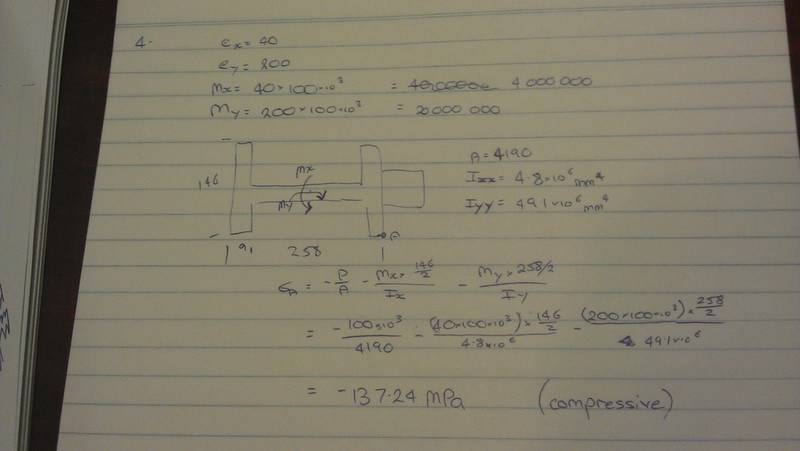 4.
ex = 40
ey = 200
Mx = 40 × 100×10³ = 4 000 000
My = 200 × 100×10³ = 20 000 000
146
Mx
My
A
9.1
258
A = 4190
Ixx = 4.8×10⁶ mm⁴
Iyy = 49.1×10⁶ mm⁴
σA = - P/A - Mx × 146/2 / Ix - My × 258/2 / Iy
= - 100×10³ / 4190 - (40×100×10³) × 146/2 / 4.8×10⁶ - (200×100×10³) × 258/2 / 49.1×10⁶
= -137.24 MPa (compressive)